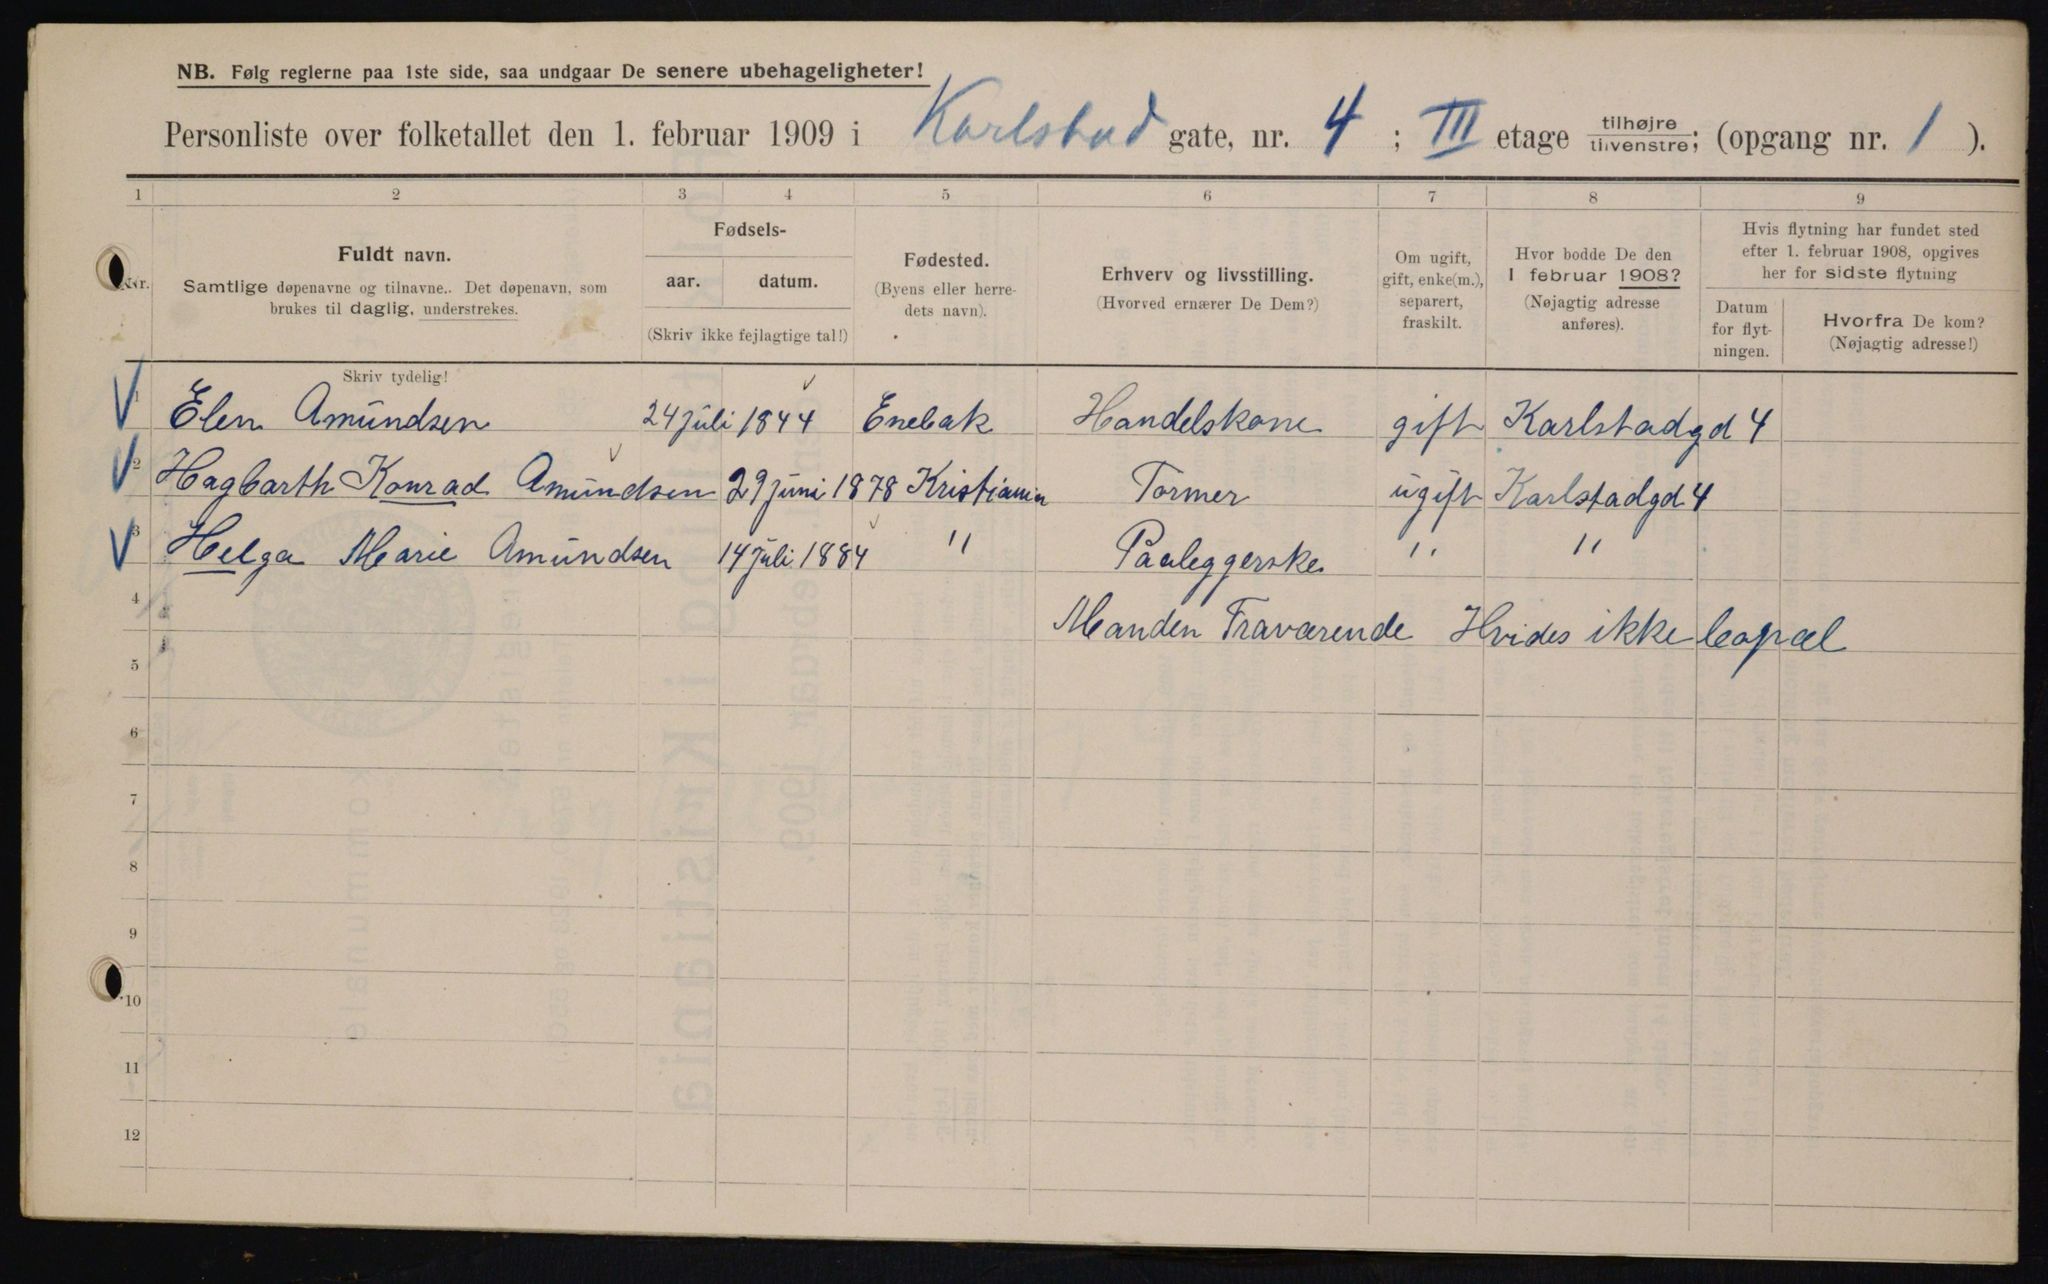 NB. Følg reglerne paa 1ste side, saa undgaar De senere ubehageligheter!
Personliste over folketallet den 1. februar 1909 i Karlstad gate, nr. 4 ; III etage tilhøjre tilvenstre; (opgang nr. 1 ).
1 2 3 4 5 6 7 8 9
Nr.
Fuldt navn.
Samtlige døpenavne og tilnavne.. Det døpenavn, som
brukes til daglig, understrekes.
Skriv tydelig!
Fødsels-
aar. datum.
(Skriv ikke fejlagtige tal!)
Fødested.
(Byens eller herre-
dets navn).
Erhverv og livsstilling.
(Hvorved ernærer De Dem?)
Om ugift,
gift, enke(m.),
separert,
fraskilt.
Hvor bodde De den
1 februar 1908?
(Nøjagtig adresse
anføres).
Hvis flytning har fundet sted
efter 1. februar 1908, opgives
her for sidste flytning
Datum
for flyt-
ningen.
Hvorfra De kom?
(Nøjagtig adresse!)
1 Elen Amundsen 24 juli 1844 Enebak Handelskone gift Karlstadgd 4
2 Hagbarth Konrad Amundsen 29 juni 1878 Kristiania Tormer ugift Karlstadgd 4
3 Helga Marie Amundsen 14 juli 1884 " Paaleggerske " "
4 Manden Traværende Hvides ikke
5
6
7
8
9
10
11
12